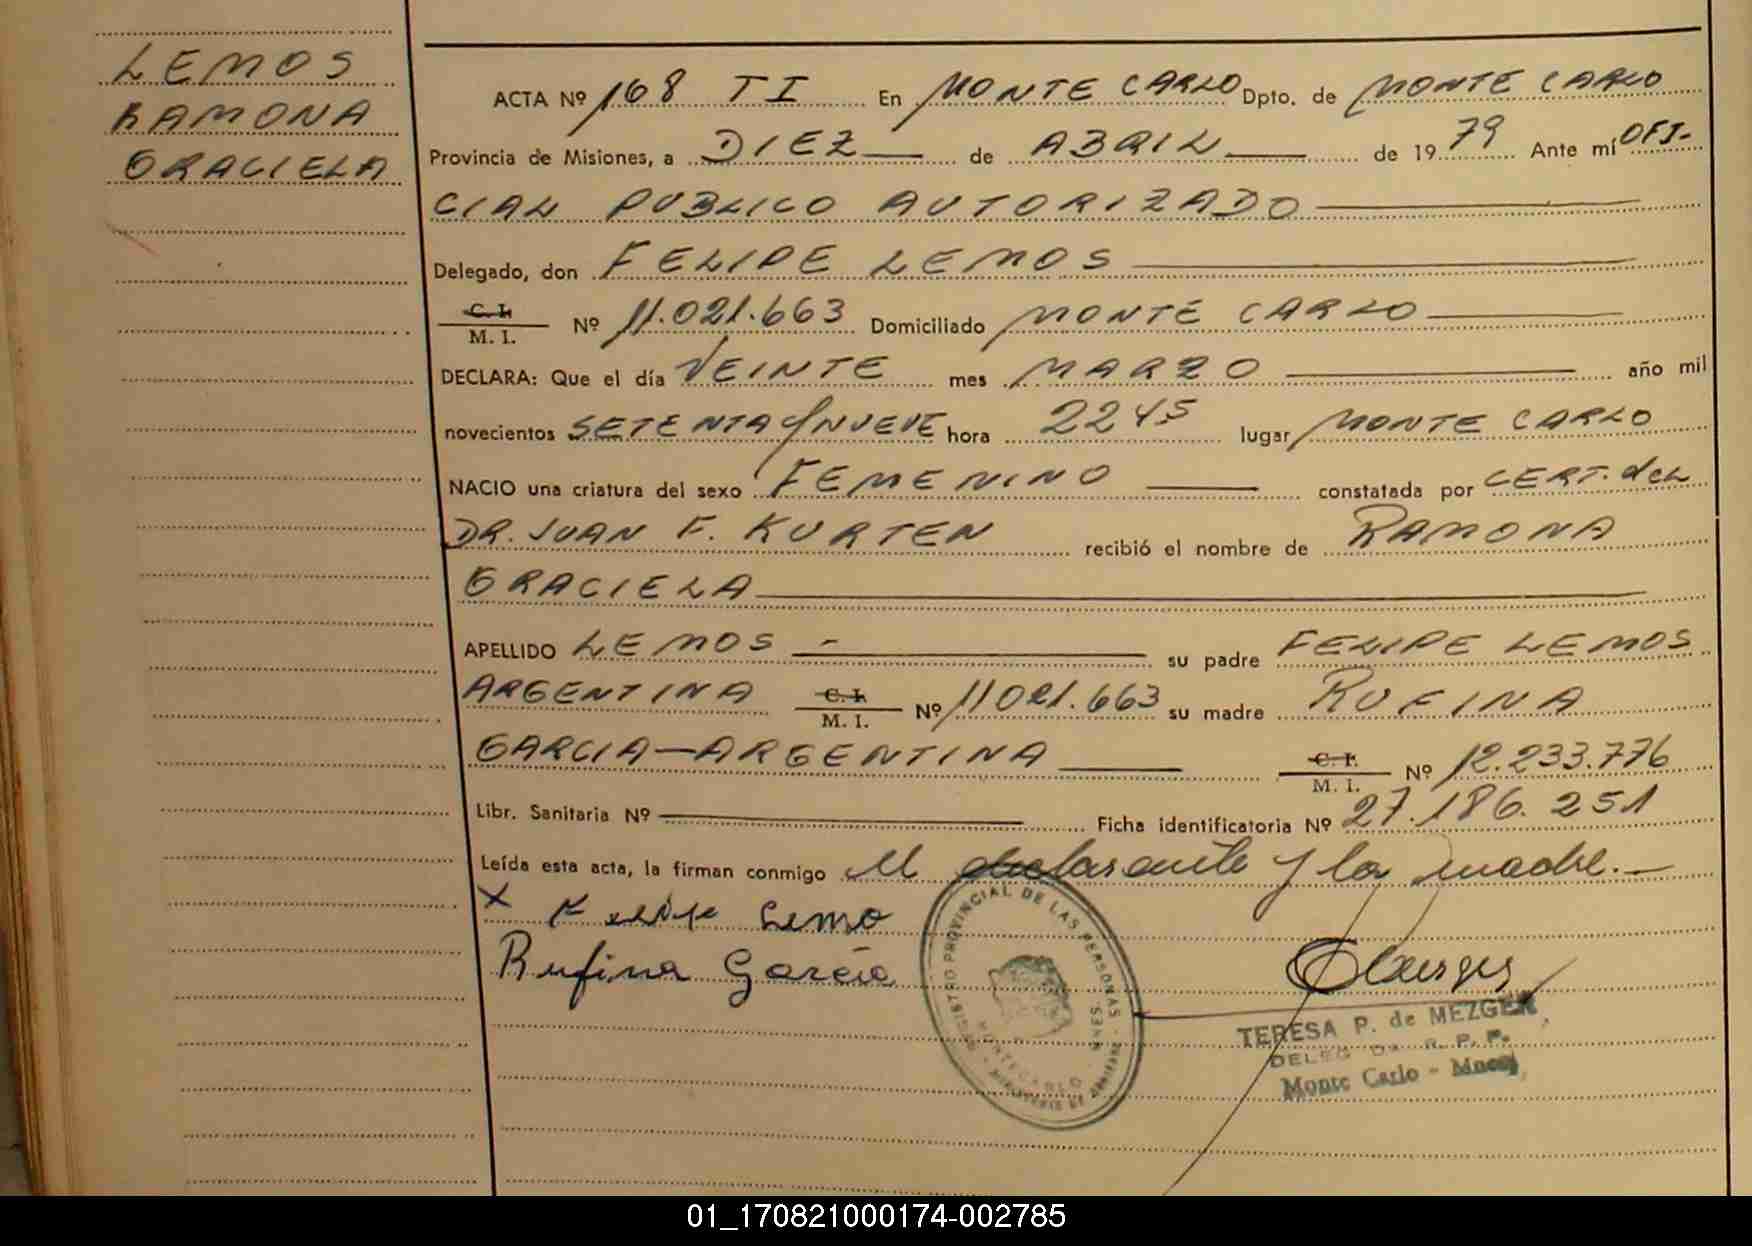 LEMOS
RAMONA
GRACIELA
ACTA Nº 168 TI En MONTE CARLO Dpto. de MONTE CARLO
Provincia de Misiones, a DIEZ de ABRIL de 1979 Ante mí OFI-
CIAL PUBLICO AUTORIZADO
Delegado, don FELIPE LEMOS
C. I.
M. I. Nº 11.021.663 Domiciliado MONTE CARLO
DECLARA: Que el día VEINTE mes MARZO año mil
novecientos SETENTA y NUEVE hora 2245 lugar MONTE CARLO
NACIO una criatura del sexo FEMENINO constatada por CERT. del
DR. JUAN F. KURTEN recibió el nombre de RAMONA
GRACIELA
APELLIDO LEMOS - su padre FELIPE LEMOS
ARGENTINA C. I. M. I. Nº 11021.663 su madre RUFINA
GARCIA-ARGENTINA C. I. M. I. Nº 12.233.776
Libr. Sanitaria Nº Ficha identificatoria Nº 27.186.251
Leída esta acta, la firman conmigo el declarante y la madre.-
x Felipe Lemo
Rufina García
REGISTRO PROVINCIAL DE LAS PERSONAS - MNES.
MONTECARLO
MINISTERIO DE GOBIERNO
TERESA P. de MEZGER
DELEG DA R. P. P.
Monte Carlo - Mnes
01_170821000174-002785